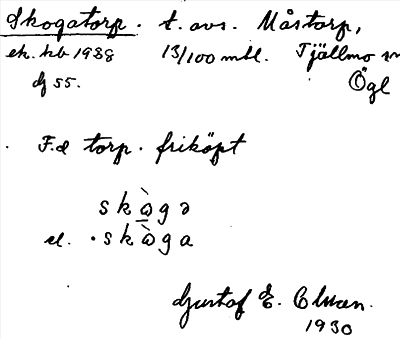 Skogatorp. t. avs. Måstorp,
ek. kb 1938 13/100 mtl. Tjällmo sn
dj 55. Ögl
F.d torp. friköpt
skò̠gə
el. ·skò̠ga
Gustaf E. Olsson.
1930